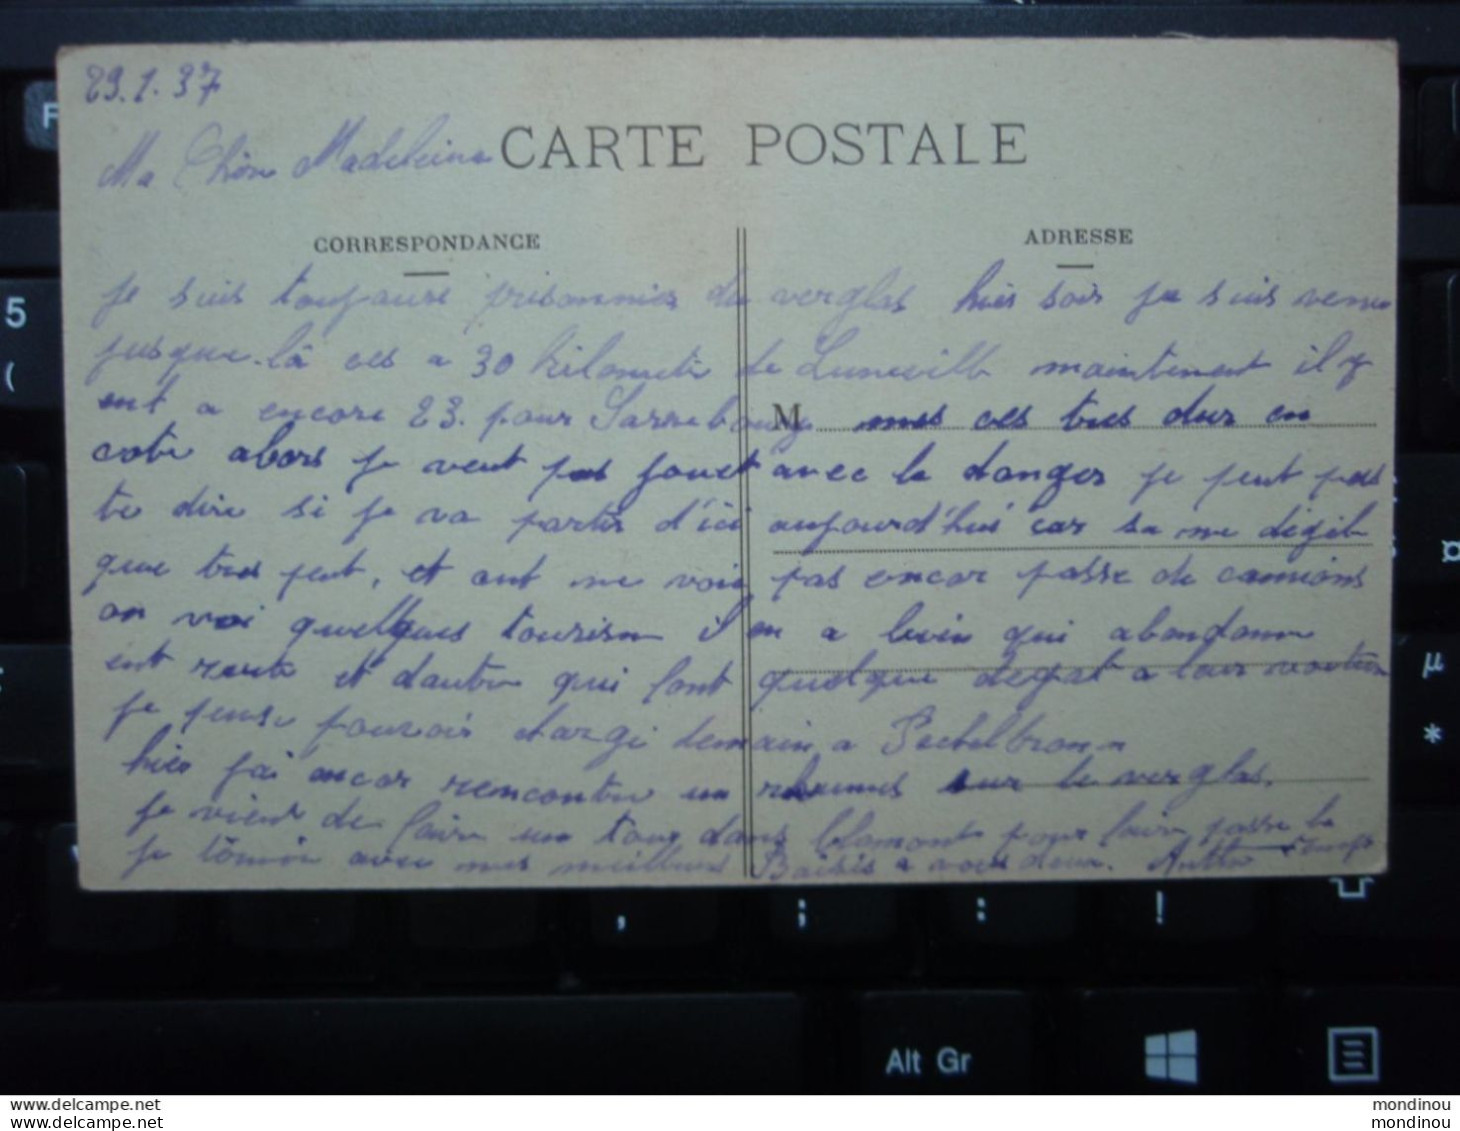 29.1.37
Ma Chère Madeleine
CARTE POSTALE
CORRESPONDANCE
ADRESSE
Je suis toujours prisonnier du verglas hier soir je suis venu
jusque-là ces a 30 kilometre de Luneville maintenent il y
ent a encore 23. pour Sarrebourg mes ces tres dur en
M
cote abors je veut pas jouet avec le danger je peut pas
te dire si je va partir d'ici aujourd'hui car sa ne dégèle
que tres peut, et ont ne voie pas encor passe de camions
on voi quelques tourism il en a bein qui abandonn
ent route et dautre qui font quelque degat a leur voiture
je pense pouvoir chargé demain a Pechelbronn
hier j'ai encor rencontre un rhumes sur le verglas.
Je vient de faire un tour dans Blamont pour faire passe le
temps
Je termine avec mes meilleurs Baisés a vous deux.
F
5
(
µ
*
,
;
:
!
Alt Gr
mondinou
mondinou
mondinou
mondinou